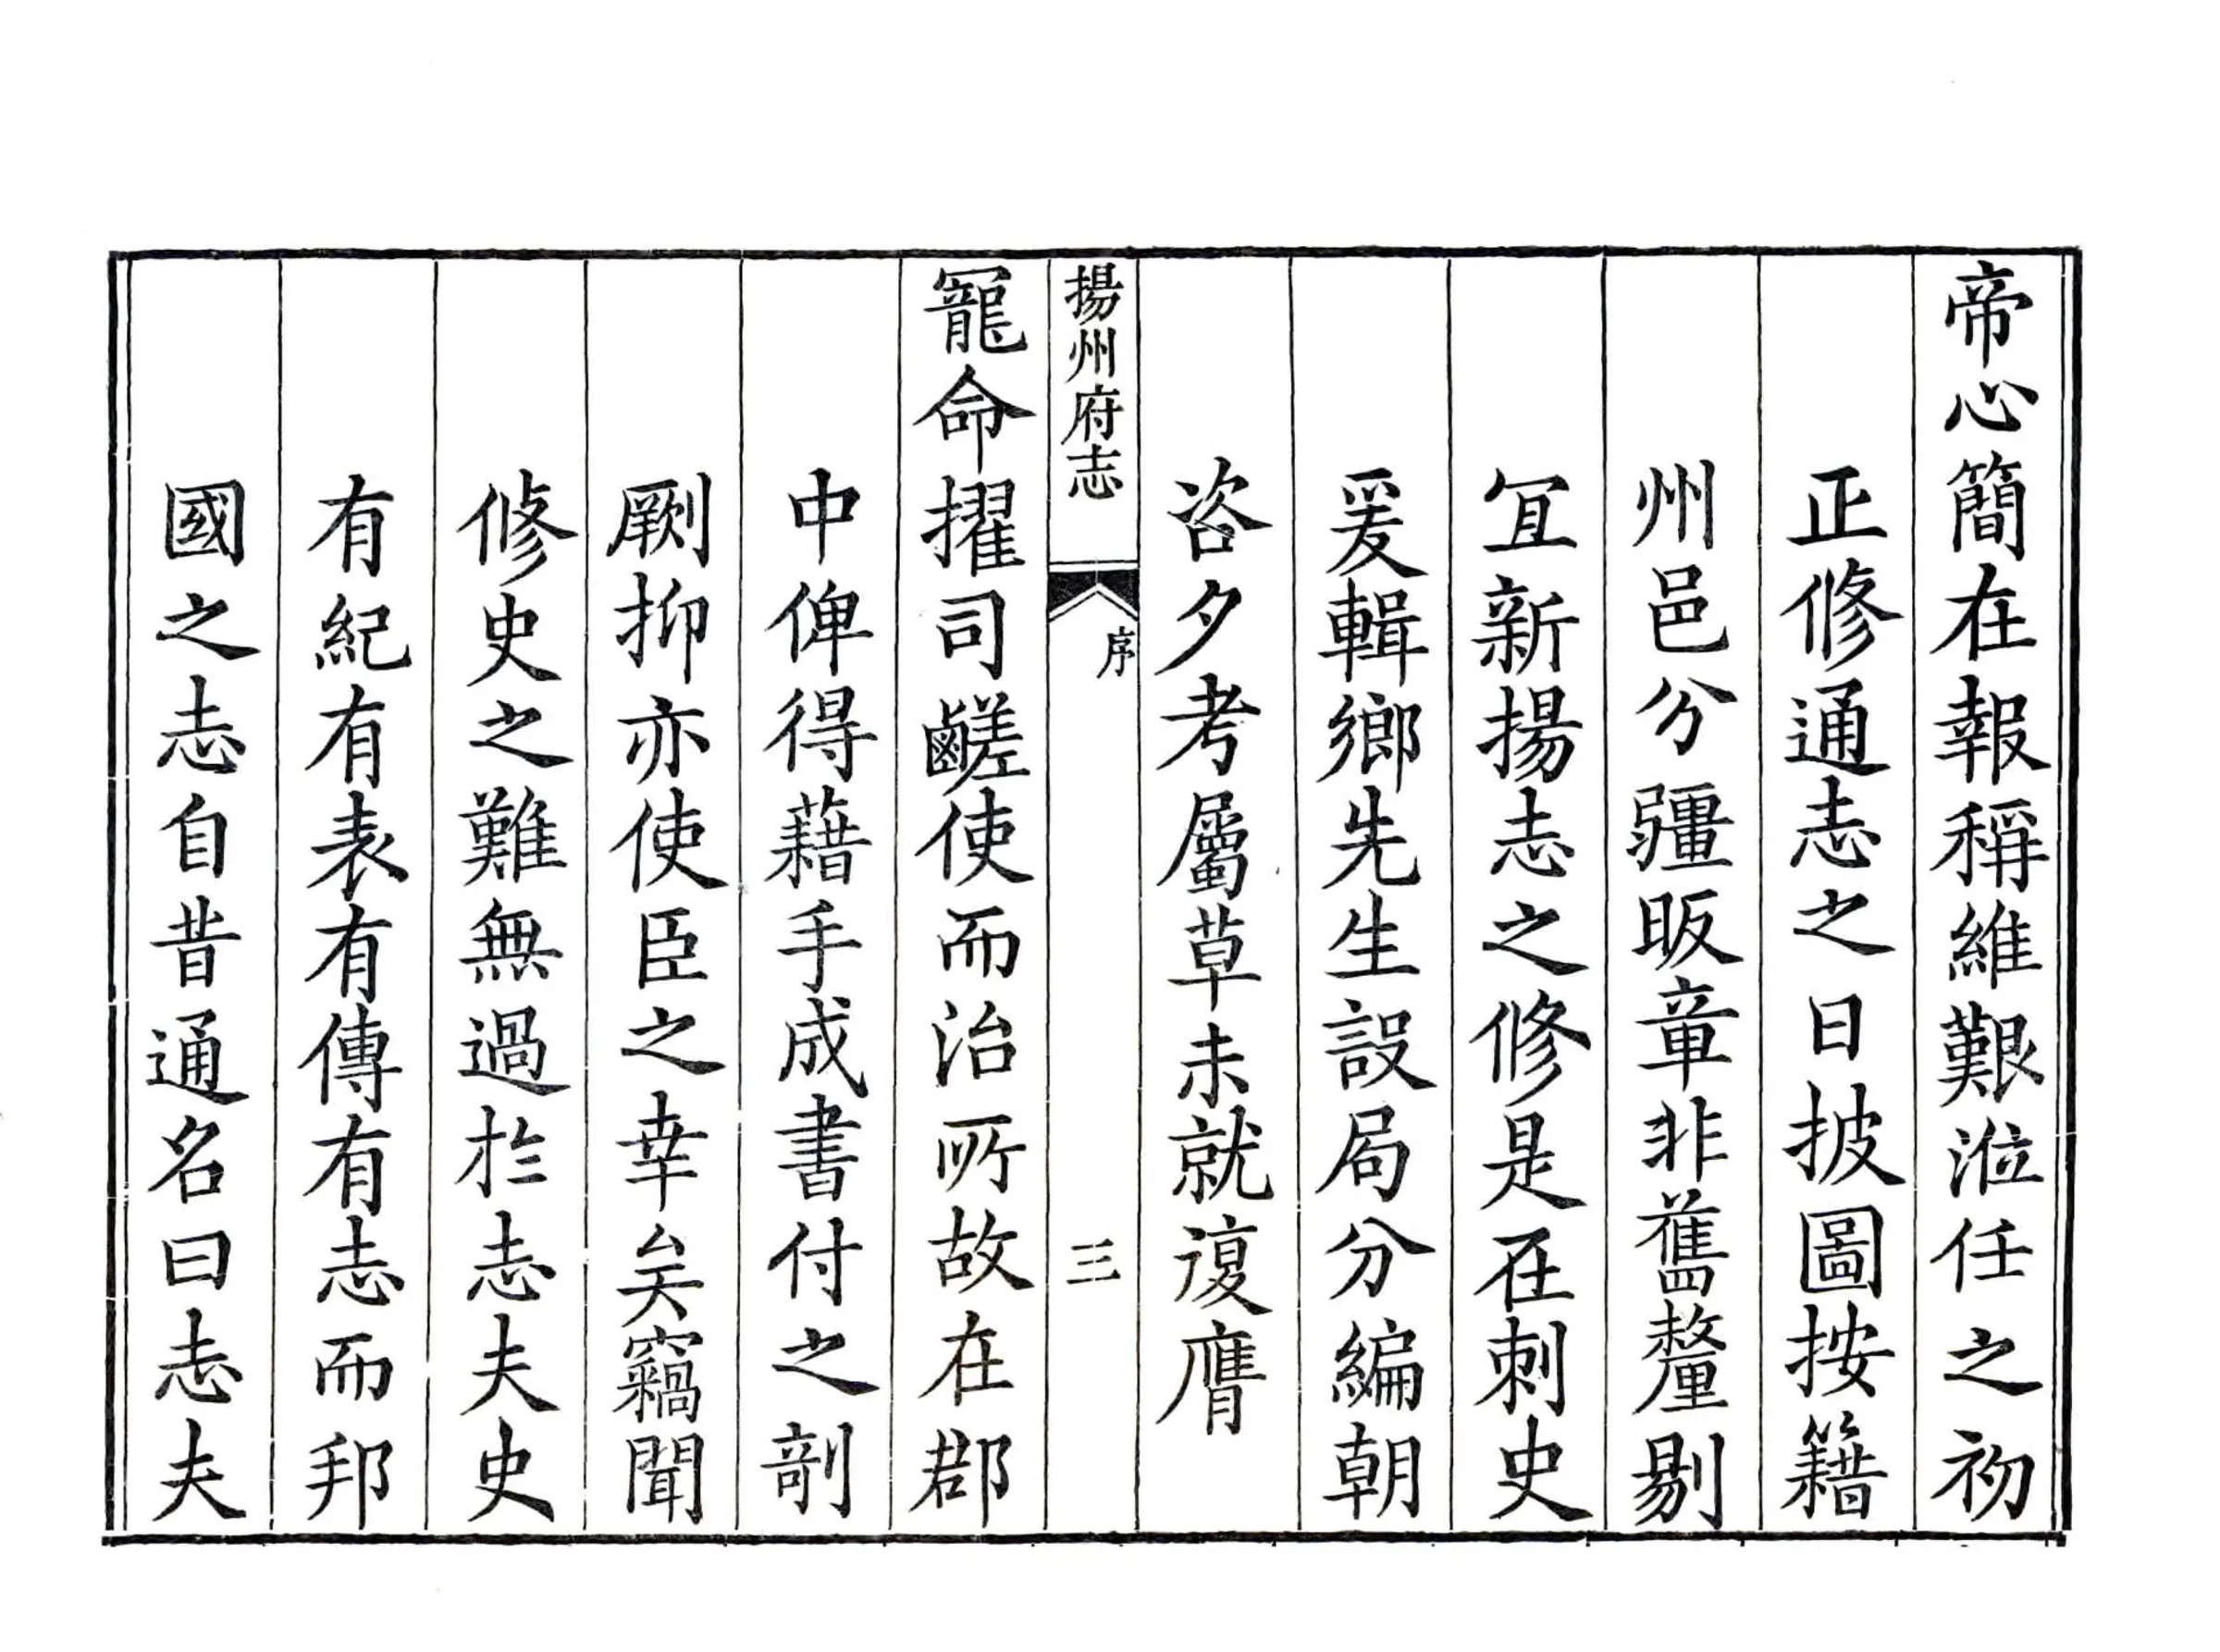 帝心簡在報稱維艱涖任之初
正修通志之日披圖按籍
州邑分疆昄章非舊釐剔
宜新揚志之修是在刺史
爰輯鄉先生設局分編朝
咨夕考屬草未就復膺
揚州府志 序 三
寵命擢司鹺使而治所故在郡
中俾得藉手成書付之剞
劂抑亦使臣之幸矣竊聞
修史之難無過於志夫史
有紀有表有傳有志而邦
國之志自昔通名曰志夫